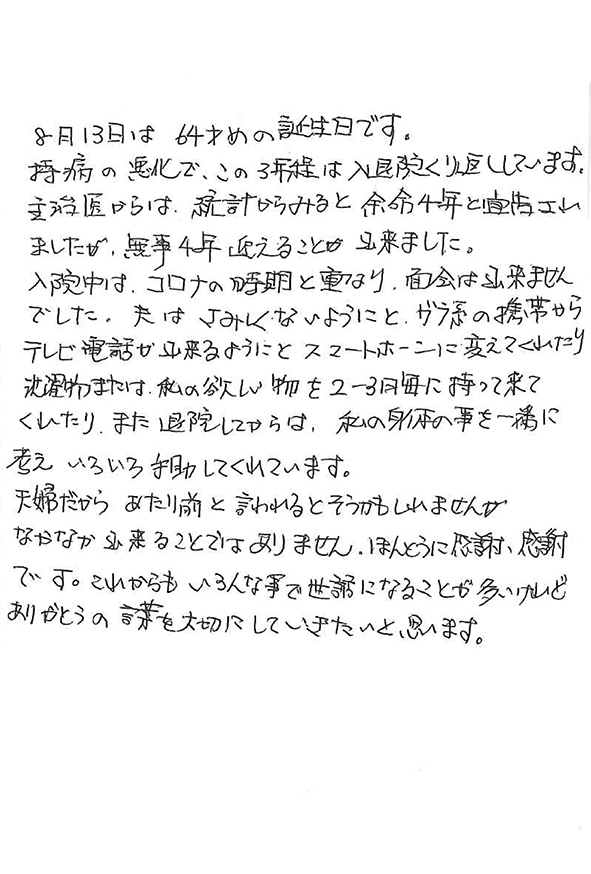 8月13日は 64才めの誕生日です。
持病の悪化で、この3年程は入退院くり返しています。
主治医からは、統計からみると 余命4年と宣告され
ましたが、無事4年迎えることが出来ました。
入院中は、コロナの時期と重なり、面会は出来ません
でした。夫は さみしくないようにと、ガラ系の携帯から
テレビ電話が出来るようにと スマートホーンに変えてくれたり
洗濯物または、私の欲しい物を2-3日毎に持って来て
くれたり、また退院してからは、私の身体の事を一緒に
考え いろいろ手助してくれています。
夫婦だから あたり前と言われるとそうかもしれませんが
なかなか出来ることではありません、ほんとうに感謝、感謝
です。これからも いろんな事で世話になることが多いけれど
ありがとうの言葉を大切にしていきたいと思います。